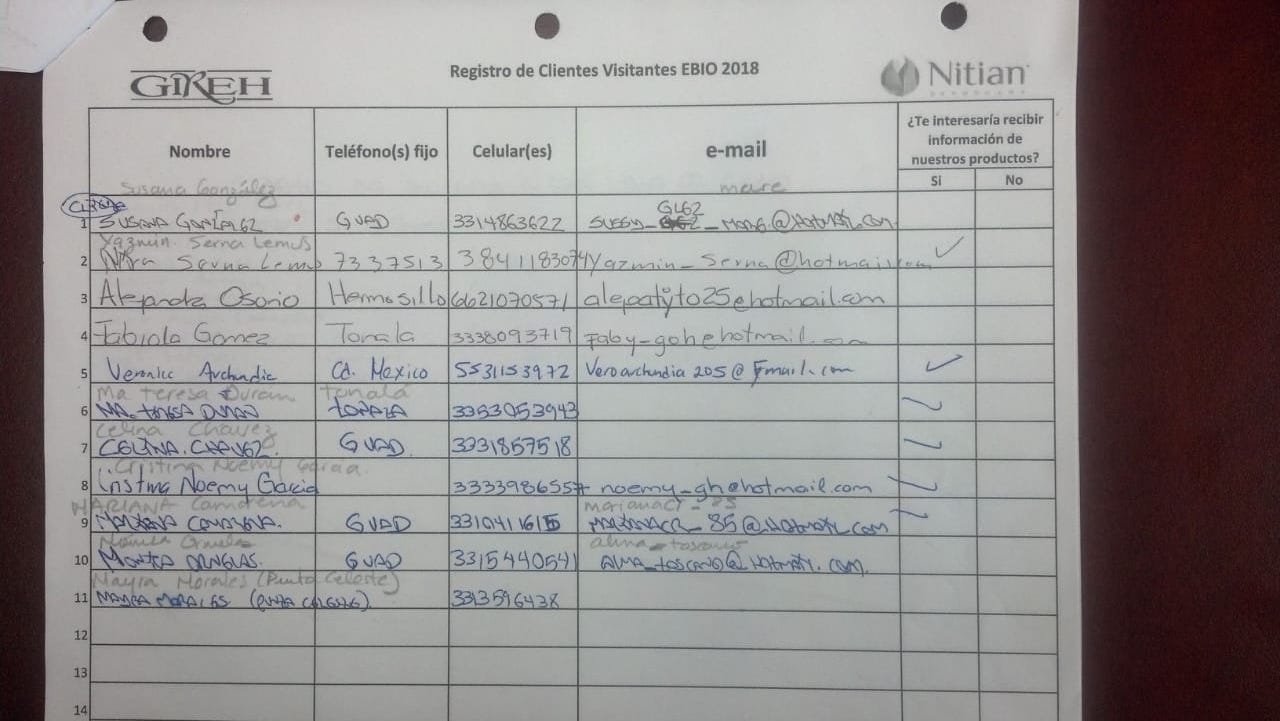 GIREH
Registro de Clientes Visitantes EBIO 2018
Nitian
Nombre Teléfono(s) fijo Celular(es) e-mail ¿Te interesaría recibir información de nuestros productos?
Si No
Susana González mare
GL62
1 SUSANA GONZALEZ GUAD 3314863622 @HOTMAIL.COM
Yazmin Serna Lemus
2 Serna Lemus 7337513 3841183074 Yazmin_Serna@hotmail.com ✓
3 Alejandra Osorio Hermosillo 6621070571 alepatyto25@hotmail.com
4 Fabiola Gomez Tonala 3338093719 Faby-goh@hotmail.com
5 Veronica Archundia Cd. Mexico 5531153972 Veroarchundia205@ ✓
Ma Teresa Duran Tonalá
6 MA. TERESA DURAN TONALA 3353053943 ✓
Celina Chavez
7 CELINA. CHAVEZ. GUAD 3331857518 ✓
Cristina Noemy Garcia
8 Cristina Noemy Garcia 3333986557 noemy_gh@hotmail.com ✓
MARIANA Camarena marianacr-85
9 MARIANA CAMARENA. GUAD 3310411615 MARIANACR_85@HOTMAIL.com ✓
alma_toscano
10 GUAD 3315440541 ALMA_TOSCANO@HOTMAIL.com.
Mayra Morales (Punto Celeste)
11 MAYRA MORALES 3313596438
12
13
14